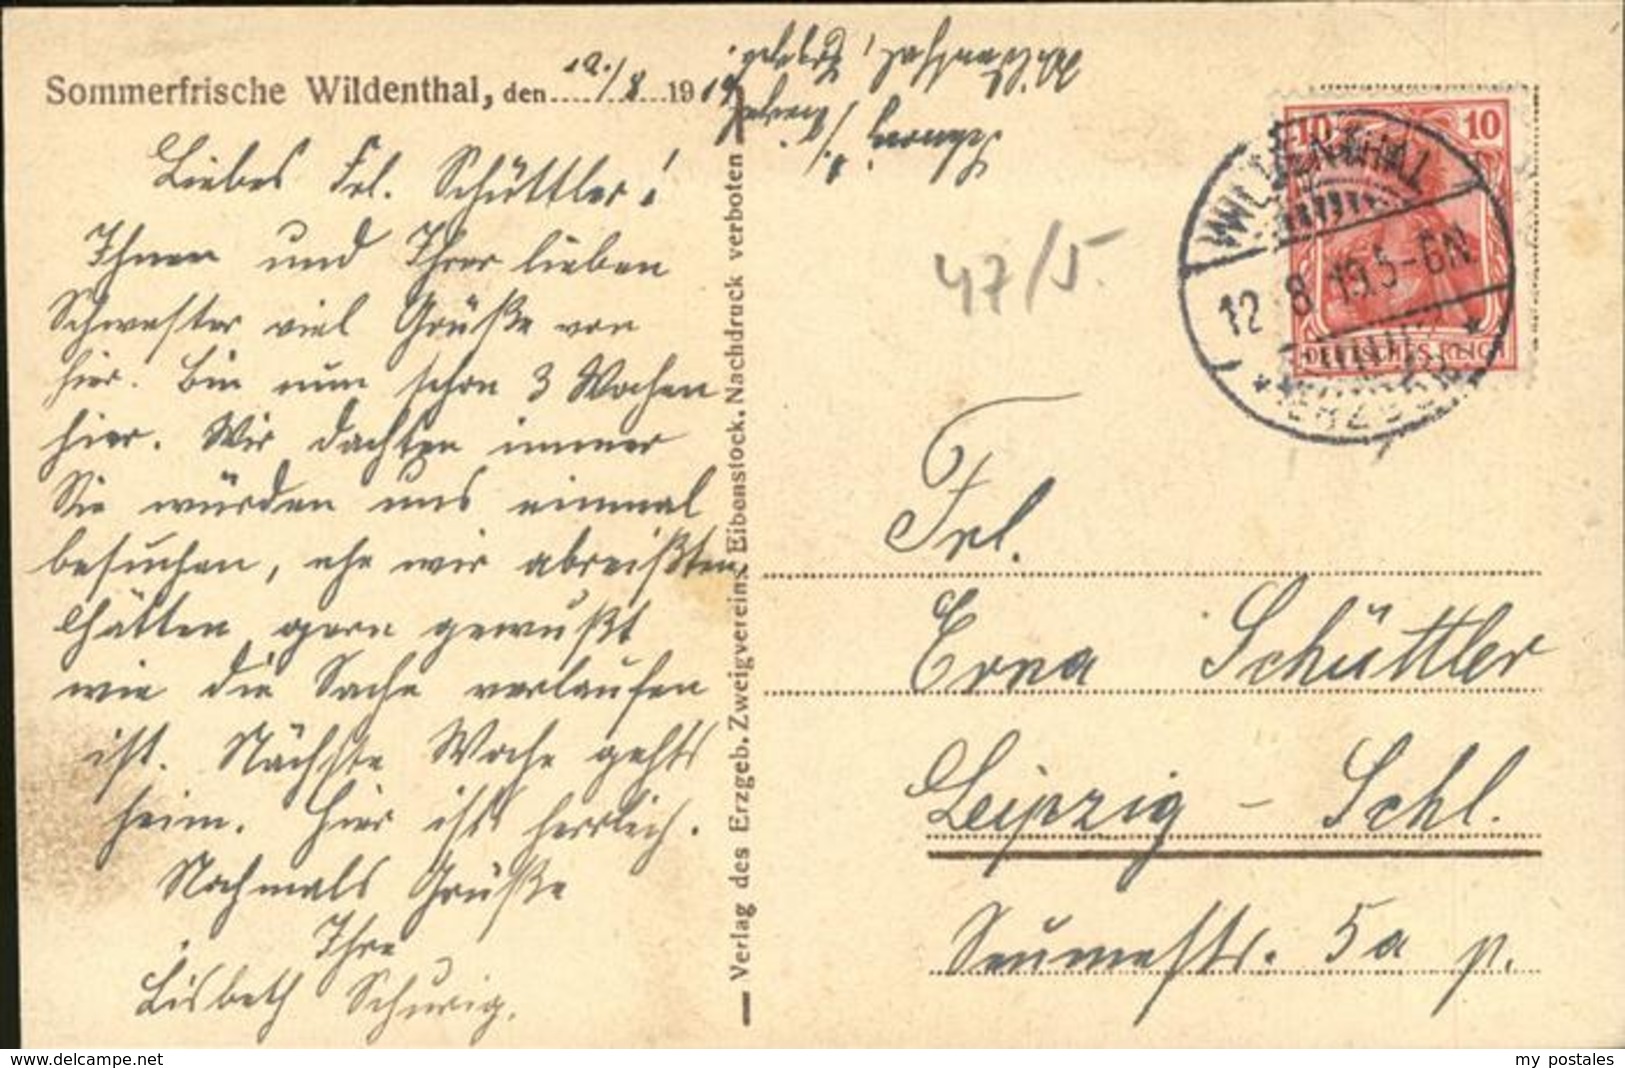 Sommerfrische Wildenthal, den 12./8. 1919
Liebes Frl. Schüttler!
Ihnen und Ihrer lieben
Schwester viel Grüße von
hier. Bin nun schon 3 Wochen
hier. Wir dachten immer
Sie würden uns einmal
besuchen, ehe wir abreißten,
hätten gern gewußt
wie die Sache verlaufen
ist. Nächste Woche gehts
heim. Hier ists herrlich.
Nochmals Grüße
Ihre
Lisbeth Schurig.
Schurig
Verlag des Erzgeb. Zweigvereins Eibenstock. Nachdruck verboten
47/5.
10 10
DEUTSCHES REICH
WILDENTHAL
12 8 19.5-6N
Frl.
Erna Schüttler
Leipzig - Schl.
Seumestr. 5a p.
www.delcampe.net
my postales